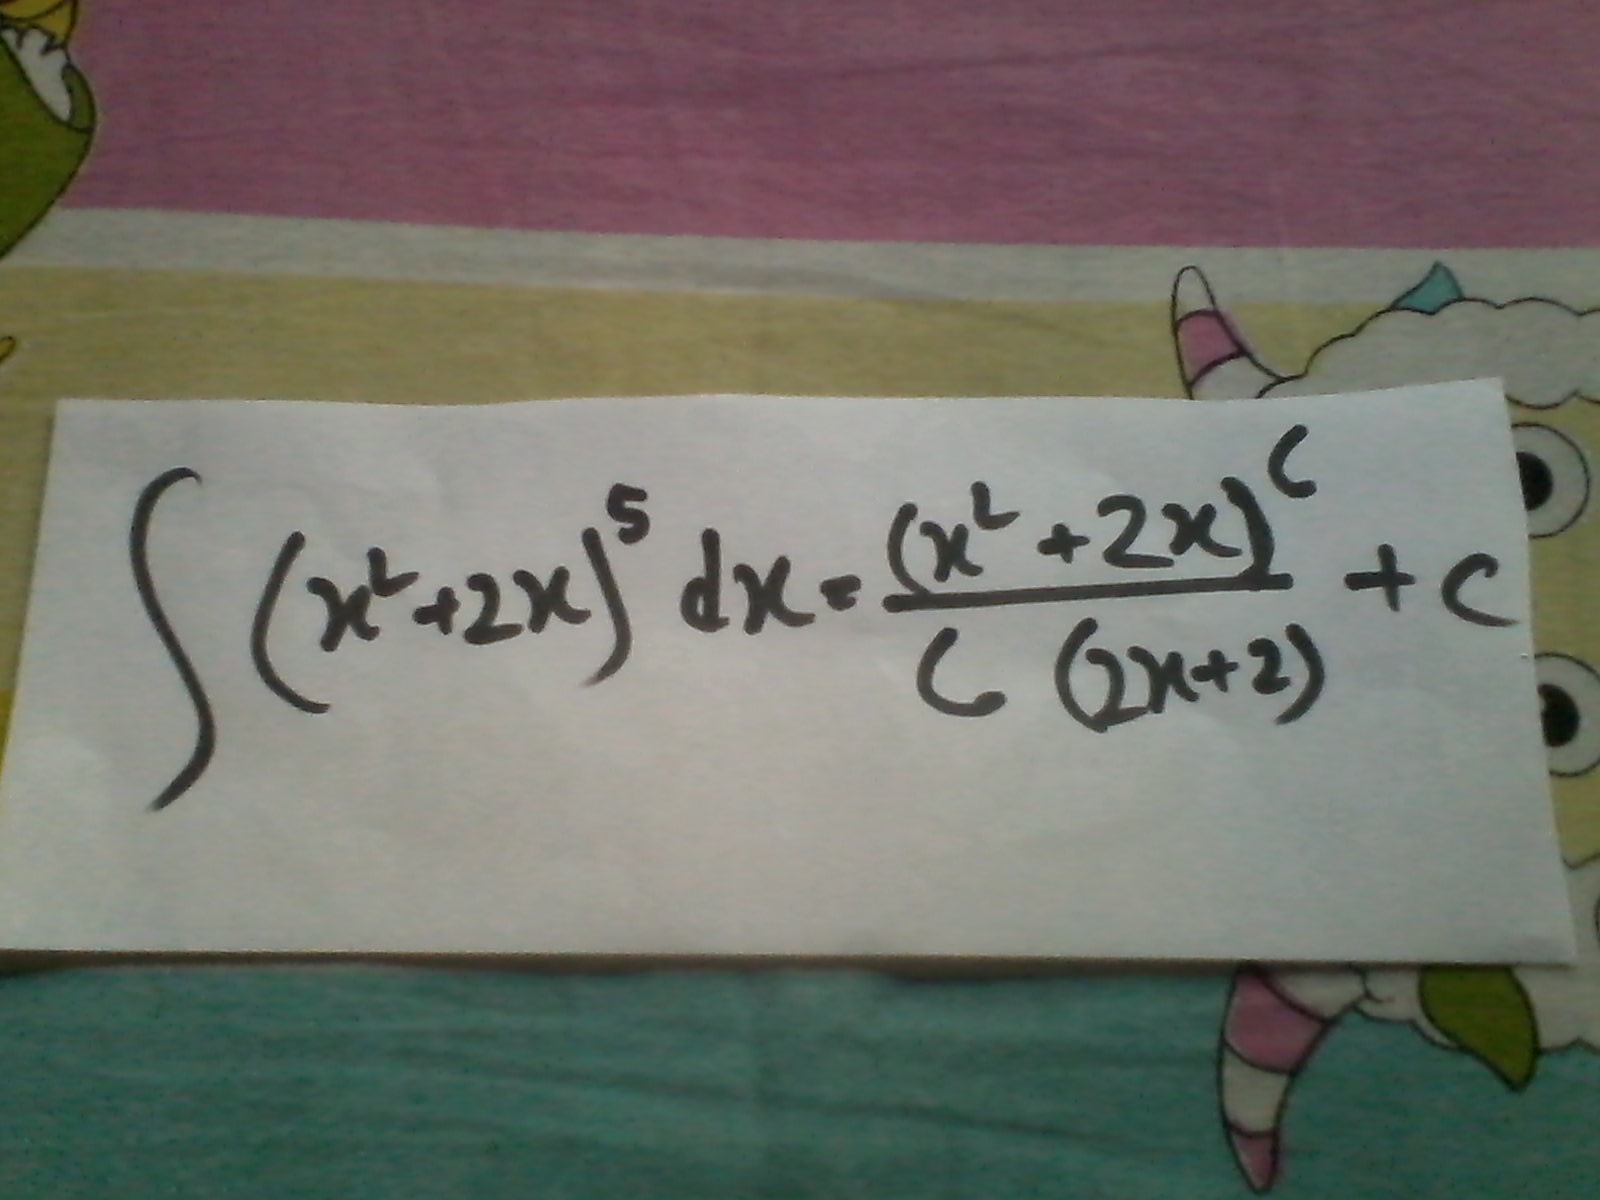 ∫ (x²+2x)⁵ dx = (x²+2x)⁶ / 6 (2x+2) + c